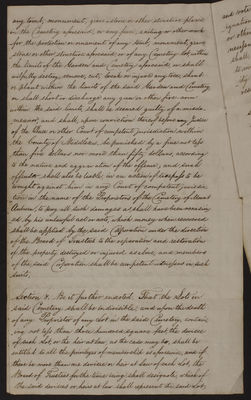 any tomb, monument, grave stone or other structure placed
in the Cemetery aforesaid, or any fence, railing or other work
for the protection or ornament of any tomb, monument, grave
stone or other structure aforesaid, or of any Cemetery lot within
the limits of the Garden and Cemetery aforesaid, or shall
wilfully destroy, remove, cut, break or injure any tree, shrub
or plant within the limits of the said Garden and Cemetery
or shall shoot or discharge any gun or other fire arm
within the said limits, shall be deemed guilty of a misde
meanor, and shall, upon conviction thereof before any Justice
of the Peace or other Court of competent jurisdiction within
the County of Middlesex, be punished by a fine not less
than five dollars nor more than fifty dollars, according
to the nature and aggravation of the offence; and such
offender shall also be liable, in an action of trespass to be
brought against him in any Court of competent jurisdic
tion in the name of the Proprietors of the Cemetery of Mount
Auburn, to pay all such damages as shall have been occasion
ed by his unlawful act or acts, which money when recovered
shall be applied by the said Corporation under the direction
of the Board of Trustees to the reparation and restoration
of the property destroyed or injured as above, and members
of the said Corporation shall be competent witnesses in such
suits.
Section 8. Be it further enacted, That the lots in
said Cemetery shall be indivisible, and upon the death
of any Proprietor of any lot in the said Cemetery, contain
ing not less than three hundred square feet the devisee
of such lot, or the heir at law, as the case may be, shall be
entitled to all the privileges of membership as aforesaid, and if
there be more than one devisee or heir at law of each lot, the
Board of Trustees for the time being shall designate, which of
the said devisees or heirs at law shall represent the said lot,